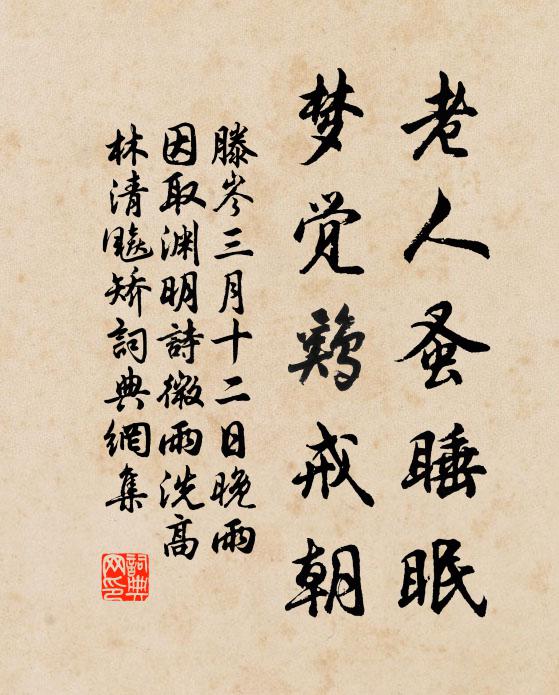 老人蚤睡眠
梦觉鷄戒朝
滕岑三月十二日晚雨
因取渊明詩微雨洗高
林清飈矯詞典網集
詞典网印